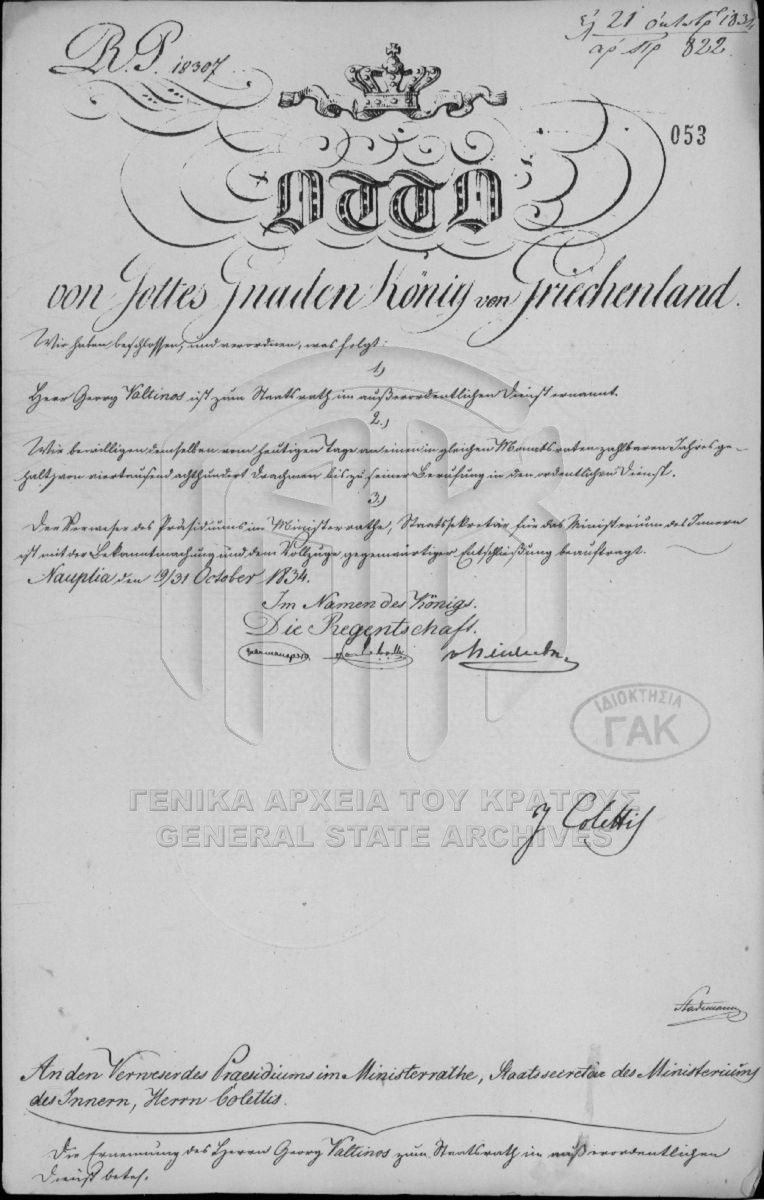 R. P. 18307
21 1834
822
053
OTTO
von Gottes Gnaden König von Griechenland.
Wir haben beschlossen, und verordnen, was folgt:
1.)
Herr Georg Valtinos ist zum Staatsrath im außerordentlichen Dienst ernannt.
2.)
Wir bewilligen demselben vom heutigen Tage an einen in gleichen Monatsraten zahlbaren Jahresge-
halt von viertausend achthundert Drachmen bis zu seiner Berufung in den ordentlichen Dienst.
3.)
Der Verweser des Präsidiums im Ministerrathe, Staatssekretär für das Ministerium des Innern
ist mit der Bekanntmachung und dem Vollzuge gegenwärtiger Entschließung beauftragt.
Nauplia den 19/31 October 1834.
Im Namen des Königs.
Die Regentschaft.
ΙΔΙΟΚΤΗΣΙΑ
ΓΑΚ
ΓΕΝΙΚΑ ΑΡΧΕΙΑ ΤΟΥ ΚΡΑΤΟΥΣ
GENERAL STATE ARCHIVES
J Colettis
Stademann
An den Verweser des Praesidiums im Ministerrathe, Staatssecretär des Ministeriums
des Innern, Herrn Colettis.
Die Ernennung des Herrn Georg Valtinos zum Staatsrath im außerordentlichen
Dienst betr.